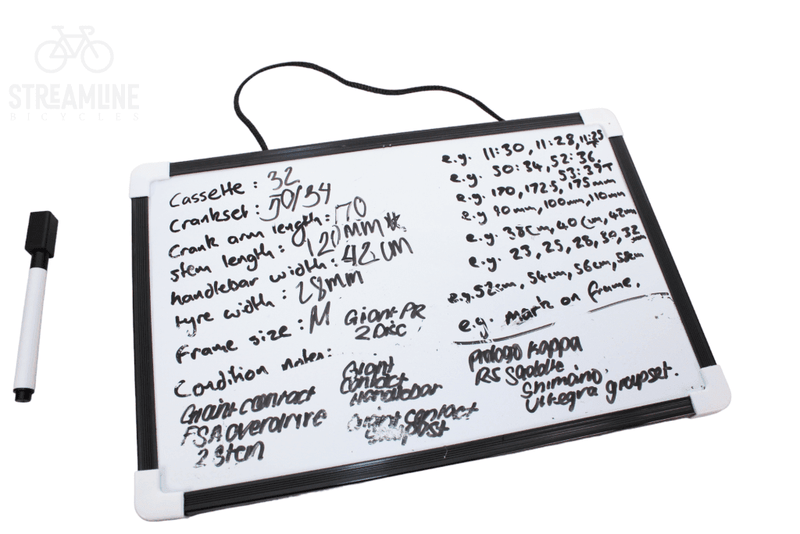 STREAMLINE
BICYCLES
Cassette: 32 e.g. 11:30, 11:28, 11:25
Crankset: 50/34 e.g. 50:34, 52:36, 53:39T
Crank arm length: 170 e.g. 170, 172.5, 175mm
Stem length: 120mm e.g. 90mm, 100mm, 110mm
handlebar width: 42cm e.g. 38cm, 40cm, 42cm
tyre width: 28mm e.g. 23, 25, 28, 30, 32mm
Frame size: M e.g. 52cm, 54cm, 56cm, 58cm
Giant PR
2 Disc
Condition notes: e.g. mark on frame.
Giant contract
FSA overdrive
2 Stem
Giant
Contact
Handlebar
Giant contact
Prologo Kappa
RS Saddle
Shimano
Ultegra groupset.